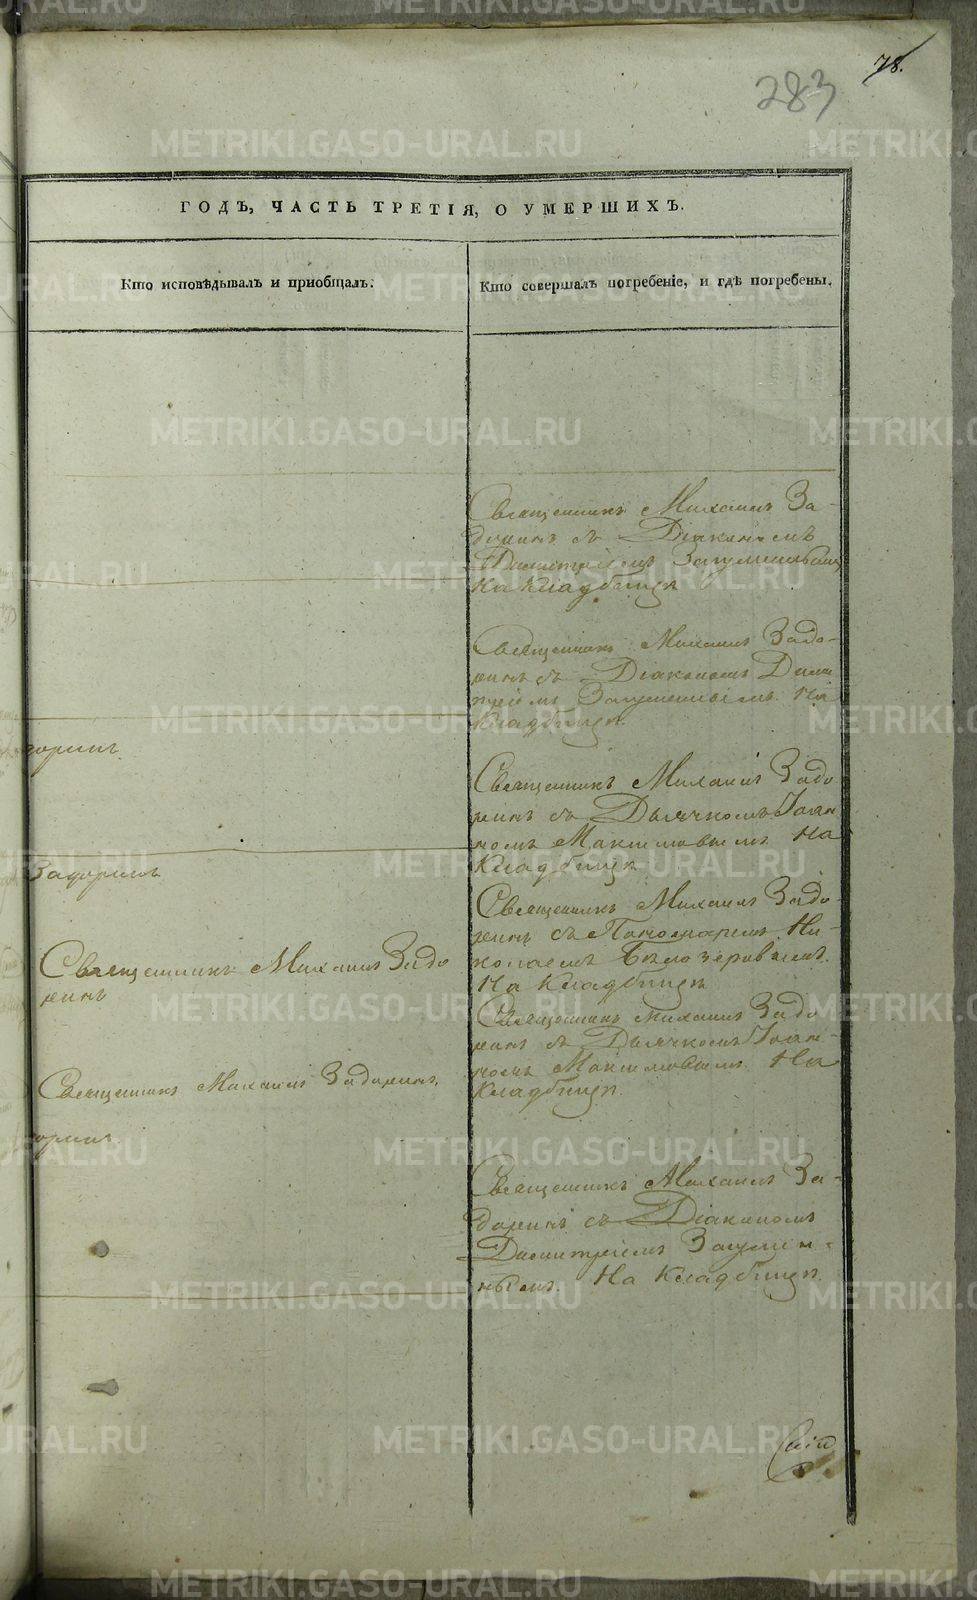 78.
283
ГОДЪ, ЧАСТЬ ТРЕТІЯ, О УМЕРШИХЪ.
Кто исповѣдывалъ и приобщалъ:
Кто совершалъ погребеніе, и гдѣ погребены.
Священникъ Михаилъ За-
доринъ съ Діакономъ
Димитріемъ
На Кладбищѣ
Священникъ Михаилъ Задо-
ринъ съ Діакономъ Дими
тріемъ На
Кладбищѣ.
доринъ
Священникъ Михаилъ Задо
ринъ съ Дьячкомъ Іоан
номъ Максимовымъ На
Кладбищѣ
Задоринъ
Священникъ Михаилъ Задо-
ринъ съ Пономаремъ Ни-
колаемъ Бѣлозеровымъ.
На Кладбищѣ
Священникъ Михаилъ Задо
ринъ
Священникъ Михаилъ Задо
ринъ съ Дьячкомъ Іоан-
номъ Максимовымъ На
Кладбищѣ.
Священникъ Михаилъ Задоринъ.
доринъ
Священникъ Михаилъ За-
доринъ съ Діакономъ
Димитріемъ Загумен-
нымъ. На Кладбищѣ.
METRIKI.GASO-URAL.RU